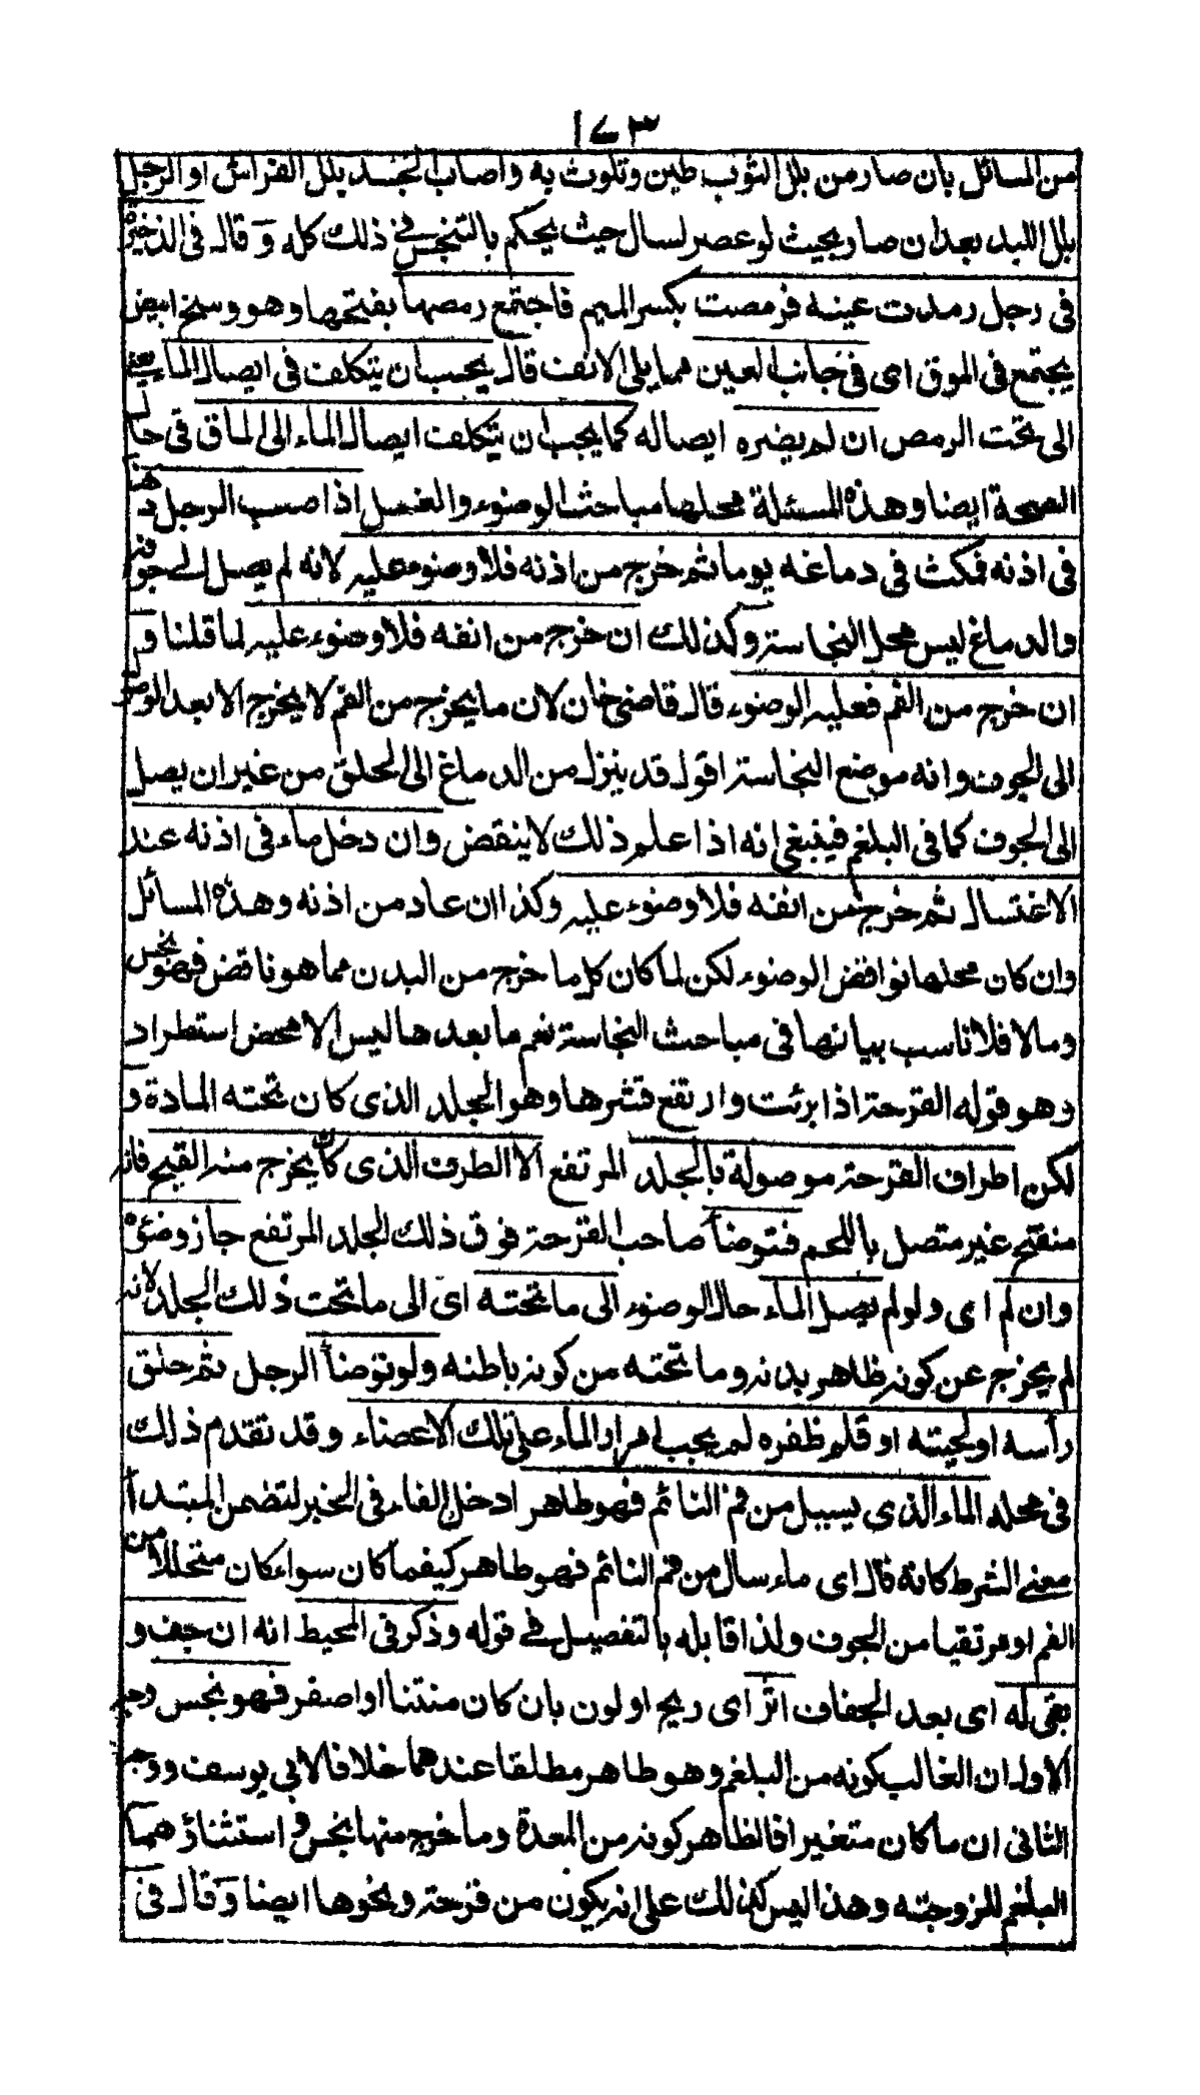 ١٧٣
من المسائل بان صار من بلل الثوب طين وتلوث به واصاب الجسد بلل الفراش او الرجل
بلل اللبد بعد ان صار بحيث لو عصر لسال حيث يحكم بالتنجس في ذلك كله وقال فى الذخيرة
فى رجل رمدت عينه فرمصت بكسر الميم فاجتمع رمصها بفتحها وهو وسخ ابيض
يجتمع فى الموق اى فى جانب العين مما يلى الانف قال يجب ان يتكلف فى ايصال الماء يعنى
الى تحت الرمص ان لم يضره ايصاله كما يجب ان يتكلف ايصال الماء الى الماق فى حال
الصحة ايضا وهذه المسئلة محلها مباحث الوضوء والغسل اذا صب الرجل دهنا
فى اذنه فمكث فى دماغه يوما ثم خرج من اذنه فلا وضوء عليه لانه لم يصل الى جوفه
والدماغ ليس محل النجاسة وكذلك ان خرج من انفه فلا وضوء عليه لما قلنا و
ان خرج من الفم فعليه الوضوء قال قاضى خان لان ما يخرج من الفم لا يخرج الا بعد الوصول
الى الجوف وانه موضع النجاسة اقول قد ينزل من الدماغ الى الحلق من غير ان يصل
الى الجوف كما فى البلغم فينبغى انه اذا علم ذلك لا ينقض وان دخل ماء فى اذنه عند
الاغتسال ثم خرج من انفه فلا وضوء عليه وكذا ان عاد من اذنه وهذه المسائل
وان كان محلها نواقض الوضوء لكن لما كان كل ما خرج من البدن مما هو ناقض فهو نجس
وما لا فلا ناسب بيانها فى مباحث النجاسة نعم ما بعدها ليس الا محض استطراد
وهو قوله القرحة اذا برئت وارتفع قشرها وهو الجلد الذى كان تحته المادة و
لكن اطراف القرحة موصولة بالجلد المرتفع الا الطرف الذى كان يخرج منه القيح فانه
منفتح غير متصل باللحم فتوضأ صاحب القرحة فوق ذلك الجلد المرتفع جاز وضوئه
وان لم اى ولو لم يصل الماء حال الوضوء الى ما تحته اى الى ما تحت ذلك الجلد لانه
لم يخرج عن كونه ظاهر بدنه وما تحته من كونه باطنه ولو توضأ الرجل ثم حلق
رأسه او لحيته او قلم ظفره لم يجب امرار الماء على تلك الاعضاء وقد تقدم ذلك
فى محله الماء الذى يسيل من فم النائم فهو طاهر ادخل الفاء فى الخبر لتضمن المبتدأ
معنى الشرط كانه قال اى ماء سال من فم النائم فهو طاهر كيفما كان سواء كان متحللا من
الفم او مرتقيا من الجوف ولذا قابله بالتفصيل فى قوله وذكر فى المحيط انه ان جف و
بقى له اى بعد الجفاف اثر اى ريح او لون بان كان منتنا او اصفر فهو نجس وجه
الاول ان الغالب كونه من البلغم وهو طاهر مطلقا عندهما خلافا لابى يوسف ووجه
الثانى ان ما كان متغيرا فالظاهر كونه من المعدة وما خرج منها نجس واستثناؤهما
البلغم للزوجته وهذا ليس كذلك على انه يكون من قرحة ونحوها ايضا وقال فى